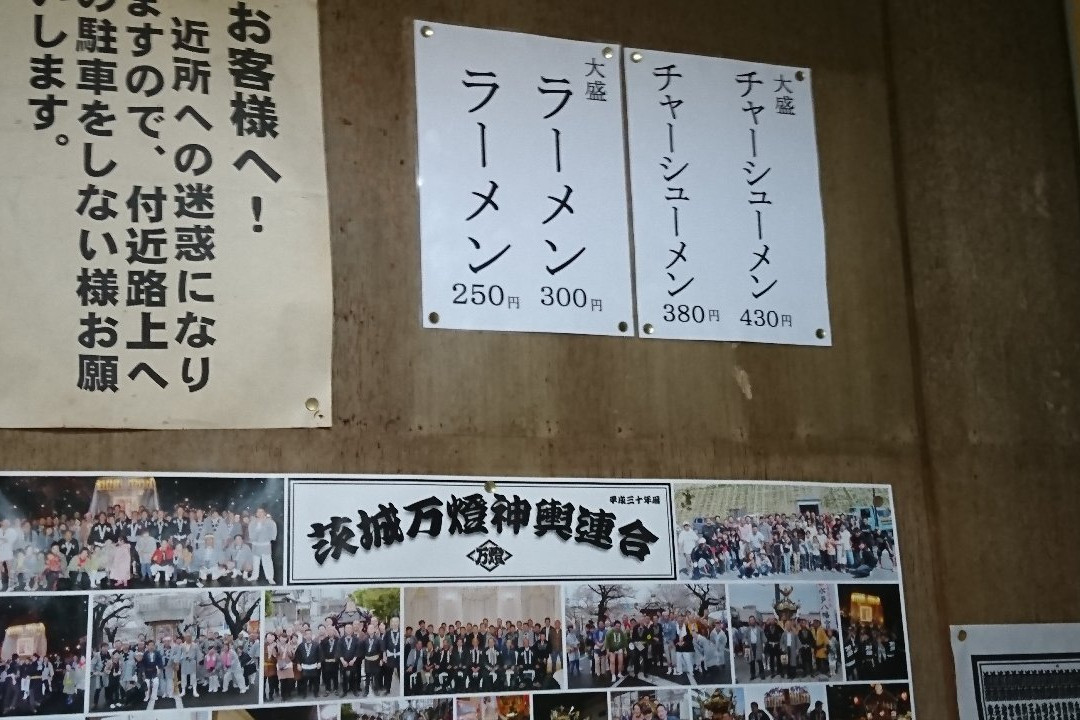 お客様へ！
近所への迷惑になり
ますので、付近路上へ
の駐車をしない様お願
いします。
大盛
チャーシューメン
430円
チャーシューメン
380円
大盛
ラーメン
300円
ラーメン
250円
平成三十年度
茨城万燈神輿連合
万燈